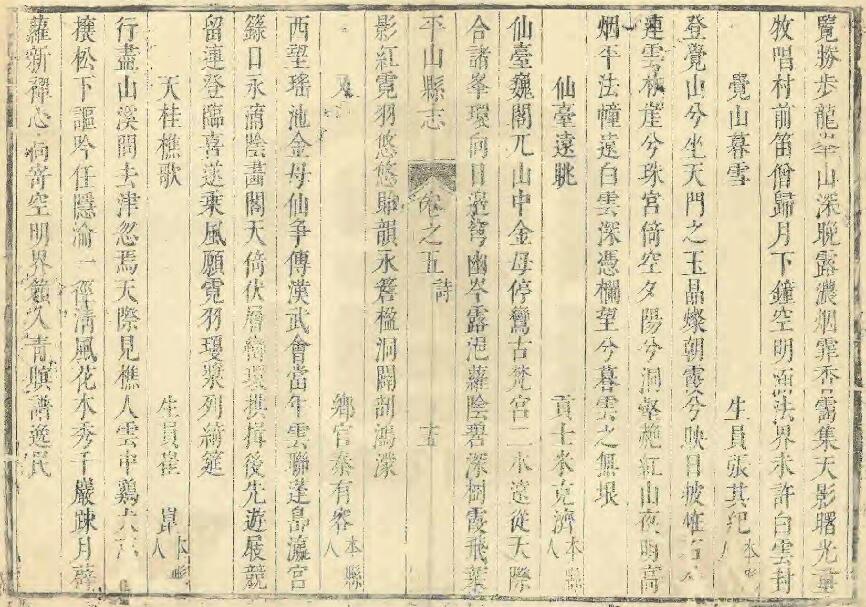 覽勝步龍山深晚露濃烟霏香靄集天影曙光
牧唱村前笛僧歸月下鐘空明法界未許白雲封
覺山暮雪 生員張其紀本
登覺山兮坐天門之玉晶燦朝霞兮映日披
連雲兮珠宮倚空夕陽兮洞壑艷紅山夜明高
烟平法幢遠白雲深憑欄望兮暮雲之無垠
仙臺遠眺 貢士米克濟本縣人
仙臺巍閣兀山中金母停鸞古梵宮二水遠從天際
合諸峯環向日邊穹幽岑露浥蘿陰碧深樹霞飛葉
平山縣志 卷之五 詩 十五
影紅霓羽悠悠賡韻永簪楹洞闢剖鴻濛
又 鄉官秦有容本縣人
西望瑤池金母仙爭傳漢武會當年雲聯蓬島瀛宮
籙日永蒲陰畫閣天倚伏層巒環拱揖後先遊展競
留連登臨喜遂乘風願霓羽瓊漿列綺筵
天桂樵歌 生員崔嵂本縣人
行盡山溪問去津忽焉天際見樵人雲中鷄犬
松下謳吟任隱淪一徑清風花木秀千巖踈月薜
蘿新禪心向寄空明界籙入青譜逸民